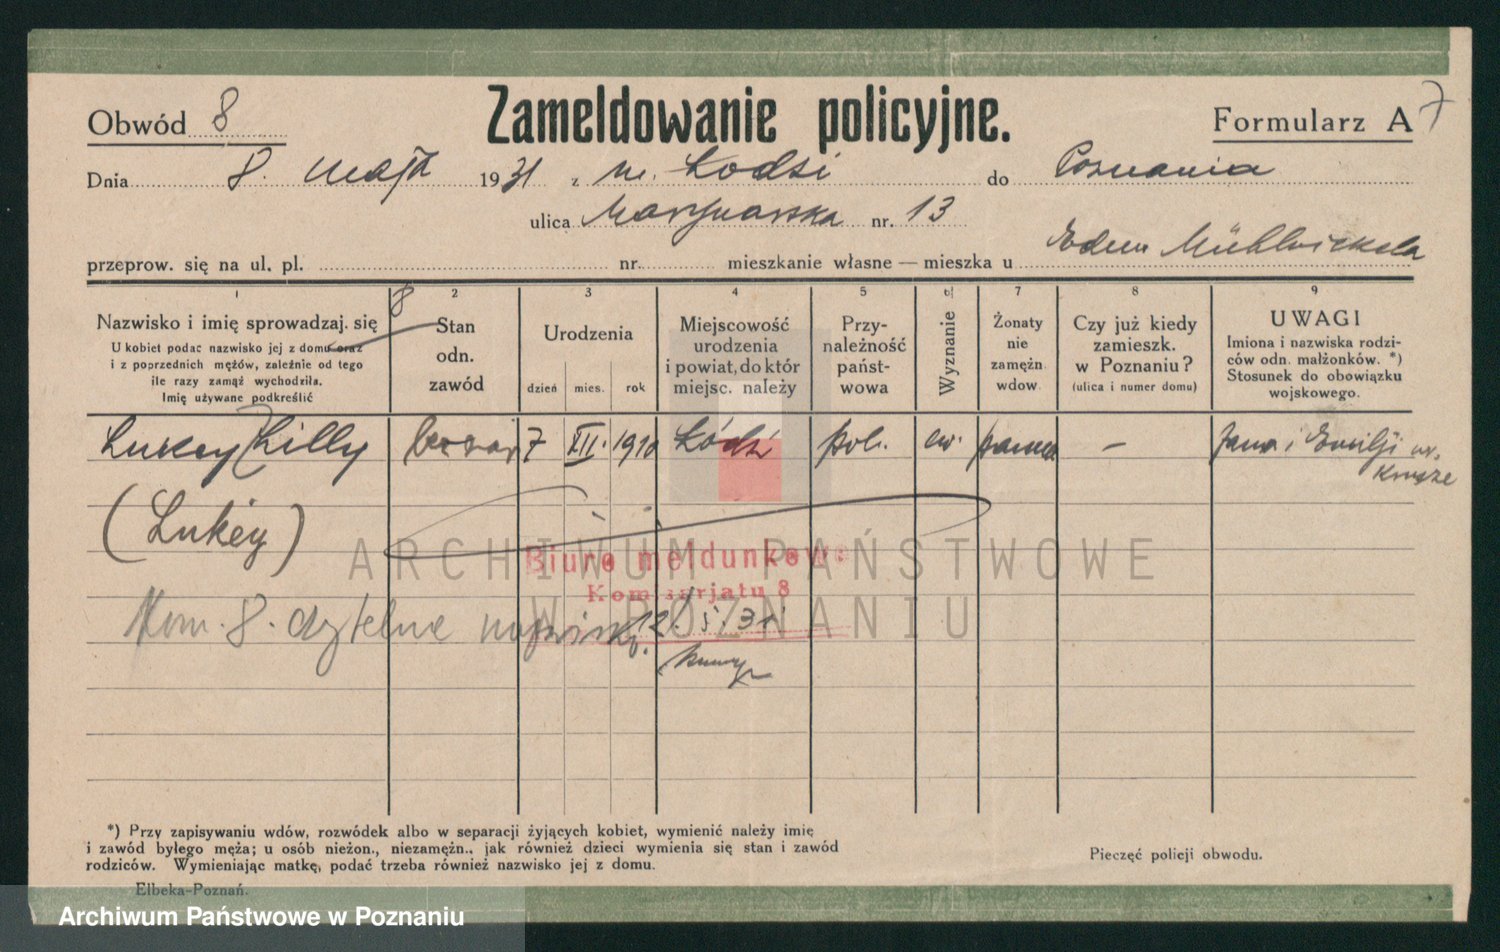 Zameldowanie policyjne.
Obwód 8
Formularz A 7
Dnia 8. maja 1931 z m. Łodzi do Poznania
ulica nr. 13
przeprow. się na ul. pl. nr. mieszkanie własne — mieszka u
1 2 3 4 5 6 7 8 9
8
Nazwisko i imię sprowadzaj. się
U kobiet podac nazwisko jej z domu oraz
i z poprzednich mężów, zależnie od tego
ile razy zamąż wychodziła.
Imię używane podkreślić
Stan
odn.
zawód
Urodzenia
dzień mies. rok
Miejscowość
urodzenia
i powiat, do któr
miejsc. należy
Przy-
należność
państ-
wowa
Wyznanie
Żonaty
nie
zamężn.
wdow.
Czy już kiedy
zamieszk.
w Poznaniu?
(ulica i numer domu)
UWAGI
Imiona i nazwiska rodzi-
ców odn. małżonków. *)
Stosunek do obowiązku
wojskowego.
Lukey Lilly 7 XII. 1910 Łódź pol. ew. panna – Jana i Emilji
(Lukey)
ARCHIWUM PAŃSTWOWE
W POZNANIU
Biuro meldunkowe
Komisarjatu 8
12. 5. 31
Kom. 8. czytelne nazwisko.
*) Przy zapisywaniu wdów, rozwódek albo w separacji żyjących kobiet, wymienić należy imię
i zawód byłego męża; u osób nieżon., niezamężn., jak również dzieci wymienia się stan i zawód
rodziców. Wymieniając matkę, podać trzeba również nazwisko jej z domu.
Pieczęć policji obwodu.
Elbeka-Poznań.
Archiwum Państwowe w Poznaniu